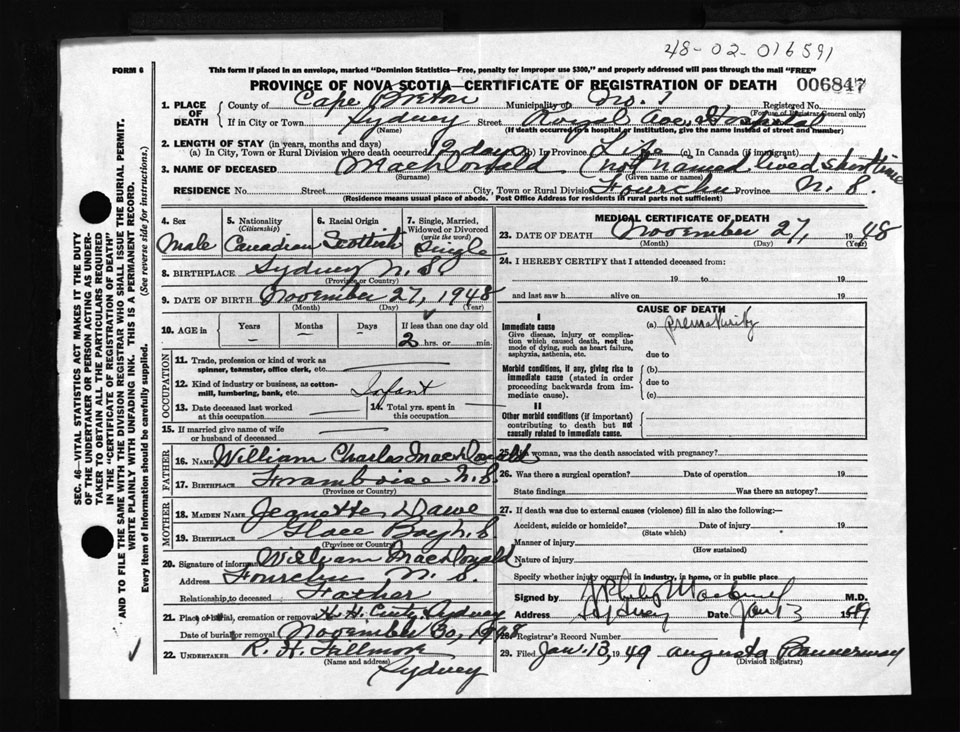 48-02-016591
FORM 6
This form if placed in an envelope, marked "Dominion Statistics—Free, penalty for improper use $300," and properly addressed will pass through the mail "FREE"
PROVINCE OF NOVA SCOTIA—CERTIFICATE OF REGISTRATION OF DEATH 006847
1. PLACE OF DEATH
County of Cape Breton Municipality of No. 7 Registered No.
(For use of Registrar General only)
If in City or Town Sydney Street Hospital
(Name) (If death occurred in a hospital or institution, give the name instead of street and number)
2. LENGTH OF STAY (in years, months and days)
(a) In City, Town or Rural Division where death occurred 12 days (b) In Province Life (c) In Canada (if immigrant)
3. NAME OF DECEASED MacDonald (not named lived short time
(Surname) (Given name or names)
RESIDENCE No. Street City, Town or Rural Division Fourchu Province N.S.
(Residence means usual place of abode. Post Office Address for residents in rural parts not sufficient)
4. Sex
Male
5. Nationality
(Citizenship)
Canadian
6. Racial Origin
Scottish
7. Single, Married, Widowed or Divorced
(write the word)
Single
8. BIRTHPLACE Sydney N.S.
(Province or Country)
9. DATE OF BIRTH November 27, 1948
(Month) (Day) (Year)
10. AGE in Years Months Days If less than one day old
– – 2 hrs. or min.
OCCUPATION
11. Trade, profession or kind of work as
spinner, teamster, office clerk, etc.
12. Kind of industry or business, as cotton-
mill, lumbering, bank, etc. Infant
13. Date deceased last worked
at this occupation
14. Total yrs. spent in
this occupation
15. If married give name of wife
or husband of deceased
FATHER
16. NAME William Charles MacDonald
17. BIRTHPLACE Framboise N.S.
(Province or Country)
MOTHER
18. MAIDEN NAME Jeanette Dawe
19. BIRTHPLACE Glace Bay N.S
(Province or Country)
20. Signature of informant William MacDonald
Address Fourchu N.S.
Relationship to deceased Father
21. Place of burial, cremation or removal Sydney
Date of burial or removal November 30, 1948
22. UNDERTAKER R. H. Fillmore
(Name and address) Sydney
MEDICAL CERTIFICATE OF DEATH
23. DATE OF DEATH November 27, 1948
(Month) (Day) (Year)
24. I HEREBY CERTIFY that I attended deceased from:
19 to 19
and last saw h alive on 19
CAUSE OF DEATH
I
Immediate cause (a) prematurity
Give disease, injury or complica-
tion which caused death, not the
mode of dying, such as heart failure,
asphyxia, asthenia, etc. due to
Morbid conditions, if any, giving rise to (b)
immediate cause (stated in order due to
proceeding backwards from im-
mediate cause). (c)
II
Other morbid conditions (if important)
contributing to death but not
causally related to immediate cause.
25. If a woman, was the death associated with pregnancy?
26. Was there a surgical operation? Date of operation 19
State findings Was there an autopsy?
27. If death was due to external causes (violence) fill in also the following:—
Accident, suicide or homicide? Date of injury 19
(State which)
Manner of injury
(How sustained)
Nature of injury
Specify whether injury occurred in industry, in home, or in public place
Signed by M.D.
Address Sydney Date Jan 13 1949
28. Registrar's Record Number
29. Filed Jan. 13, 1949 Augusta
(Division Registrar)
SEC. 46—VITAL STATISTICS ACT MAKES IT THE DUTY
OF THE UNDERTAKER OR PERSON ACTING AS UNDER-
TAKER TO OBTAIN ALL THE PARTICULARS REQUIRED
IN THE "CERTIFICATE OF REGISTRATION OF DEATH"
AND TO FILE THE SAME WITH THE DIVISION REGISTRAR WHO SHALL ISSUE THE BURIAL PERMIT.
WRITE PLAINLY WITH UNFADING INK. THIS IS A PERMANENT RECORD.
Every item of Information should be carefully supplied. (See reverse side for instructions.)